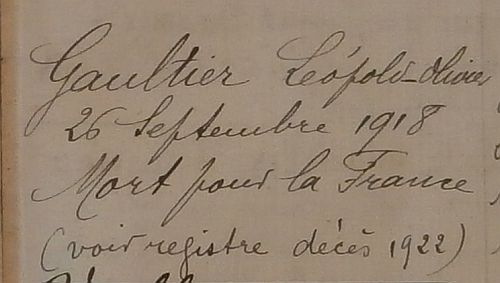 Gaultier Léopold-Olivier
26 Septembre 1918
Mort pour la France
(voir registre décès 1922)